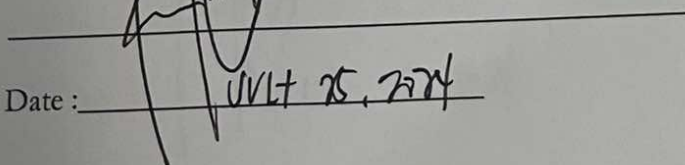 Date : JULY 25, 2024